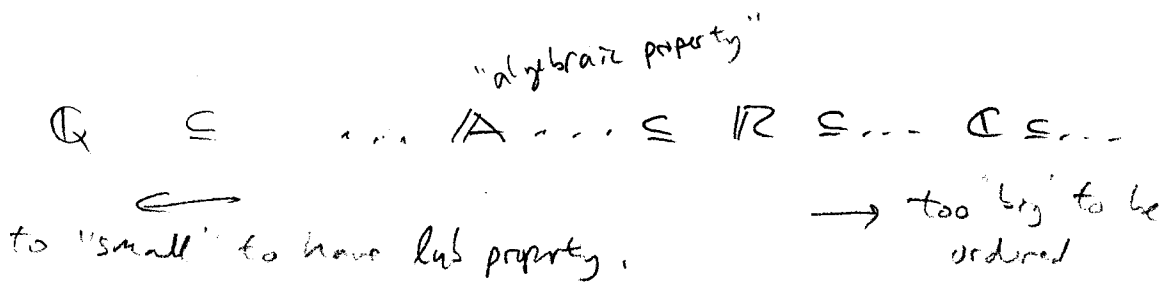 "algebraic property"
ℚ ⊆ ... 𝔸 .... ⊆ ℝ ⊆... ℂ ⊆...
⟵ to "small" to have lub property.
⟶ too "big" to be
ordered